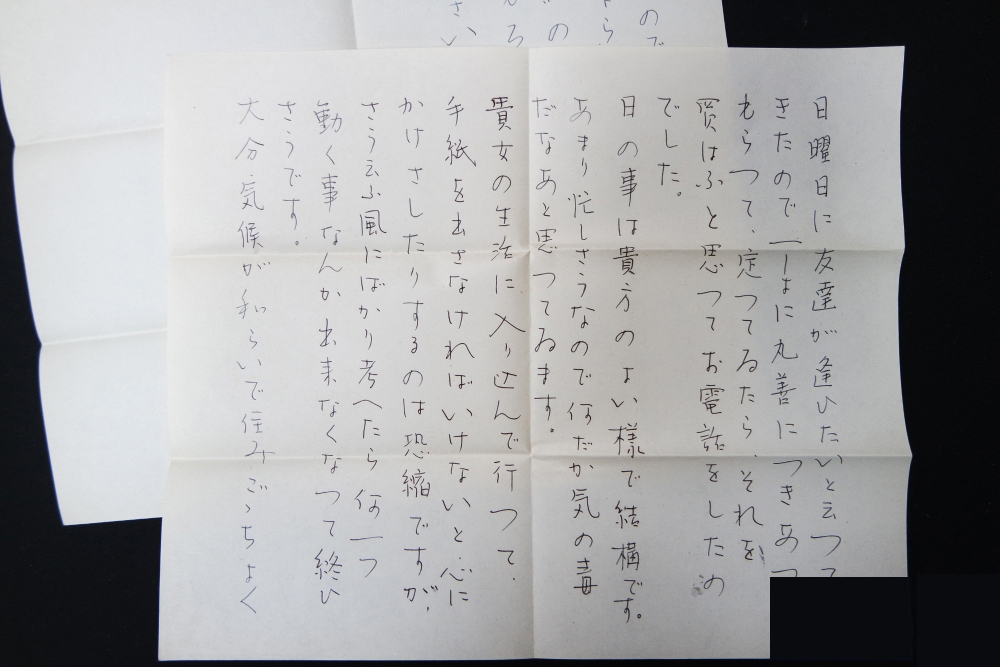 日曜日に友達が逢ひたいと云つて
きたので一しよに丸善につきあつ
もらつて、定つてゐたら、それを
買はふと思つてお電話をしたの
でした。
日の事は貴方のよい様で結構です。
あまり忙しさうなので何だか気の毒
だなあと思つてゐます。
貴女の生活に入り込んで行つて、
手紙を出さなければいけないと心に
かけさしたりするのは恐縮ですが、
さう云ふ風にばかり考へたら何一つ
動く事なんか出来なくなつて終ひ
さうです。
大分気候が和らいで住みごゝちよく